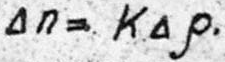 Δn = KΔρ.